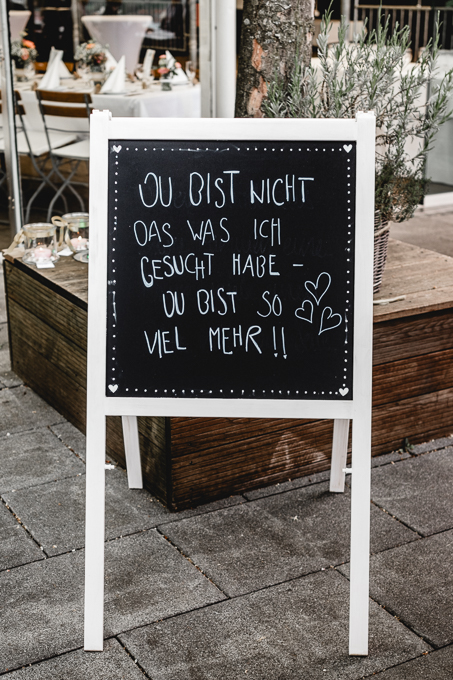 DU BIST NICHT
DAS WAS ICH
GESUCHT HABE –
DU BIST SO
VIEL MEHR!!